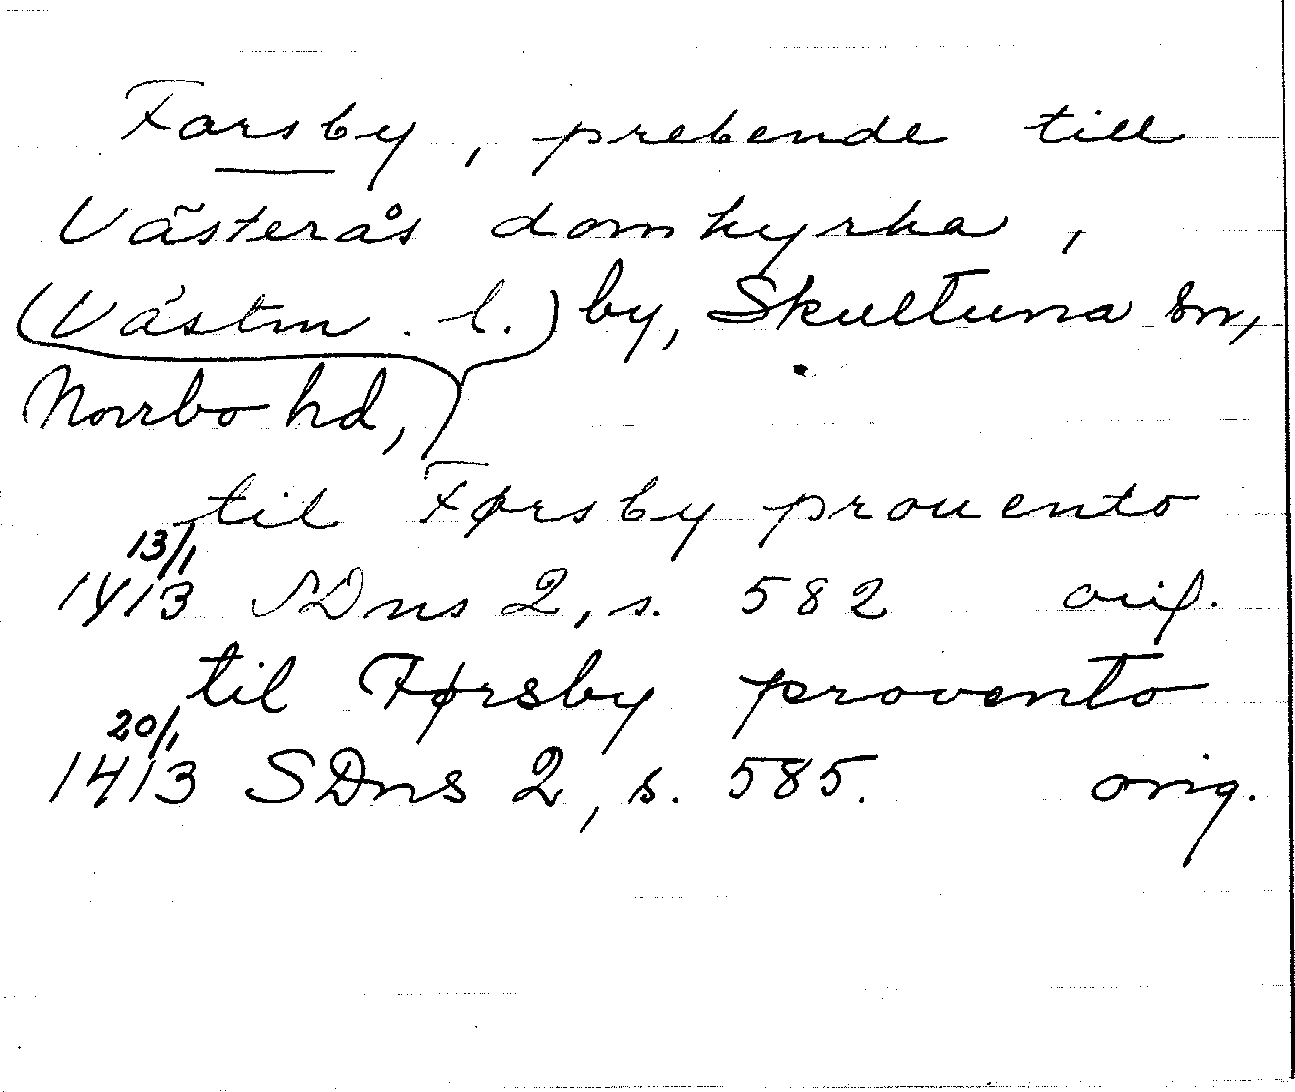 Forsby, prebende till
Västerås domkyrka,
(Västm. l.) by, Skultuna sn,
Norrbo hd,
til Førsby prouento
13/1
1413 SDns 2, s. 582 orig.
til Førsby provento
20/1
1413 SDns 2, s. 585. orig.